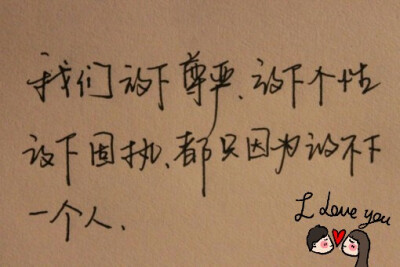 我们放下尊严、放下个性
放下固执、都只因为放不下
一个人、
I Love you